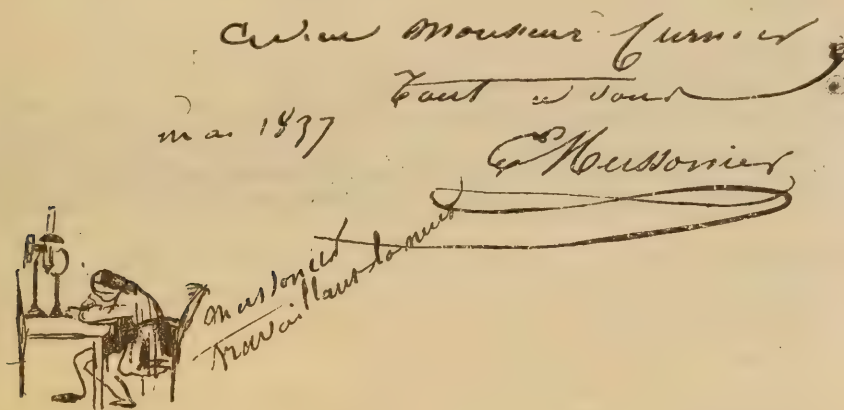 monsieur Curmer
tout à vous
mai 1837
EMeissonier
Meissonier
travaillant la nuit